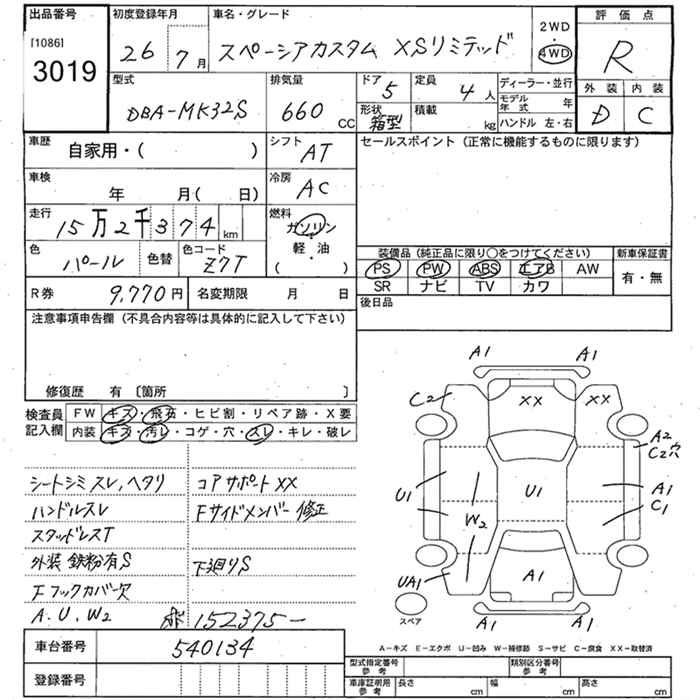 出品番号 初度登録年月 車名・グレード 2WD 評価点
[1086] 26 7月 スペーシアカスタム XSリミテッド ・ 4WD R
3019 型式 排気量 ドア 5 定員 4人 ディーラー・並行 外装 内装
DBA-MK32S 660 CC 形状 箱型 積載 kg モデル年式 年 D C
ハンドル 左・右
車歴 自家用・( ) シフト AT セールスポイント (正常に機能するものに限ります)
車検 年 月( 日) 冷房 AC
走行 15万2千374km 燃料 ガソリン
・
軽・油
( )
色 パール 色替 色コード Z7T
装備品 (純正品に限り○をつけてください) 新車保証書
PS PW ABS エアB AW 有・無
SR ナビ TV カワ
R券 9,770円 名変期限 月 日 後日品
注意事項申告欄 (不具合内容等は具体的に記入して下さい)
修復歴 有 〔箇所 〕
検査員 FW キズ・飛石・ヒビ割・リペア跡・X要
記入欄 内装 キズ・汚レ・コゲ・穴・スレ・キレ・破レ
シートシミスレ,ヘタリ コアサポートXX
ハンドルスレ Fサイドメンバー修正
スタッドレスT
外装 鉄粉有S 下廻りS
Fフックカバー欠
A.U.W2 152375-
車台番号 540134
登録番号
A1 A1
C2 XX XX
A2
C2穴
U1 U1 A1
W2 C1
UA1 A1
スペア A1 A1
A-キズ E-エクボ U-凹み W-補修跡 S-サビ C-腐食 XX-取替済
型式指定番号 参考 類別区分番号 参考
車庫証明用 参考 長さ cm 幅 cm 高さ cm